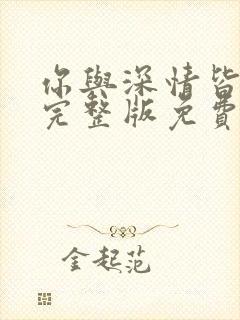 你與深情皆
完整版免費
金起范